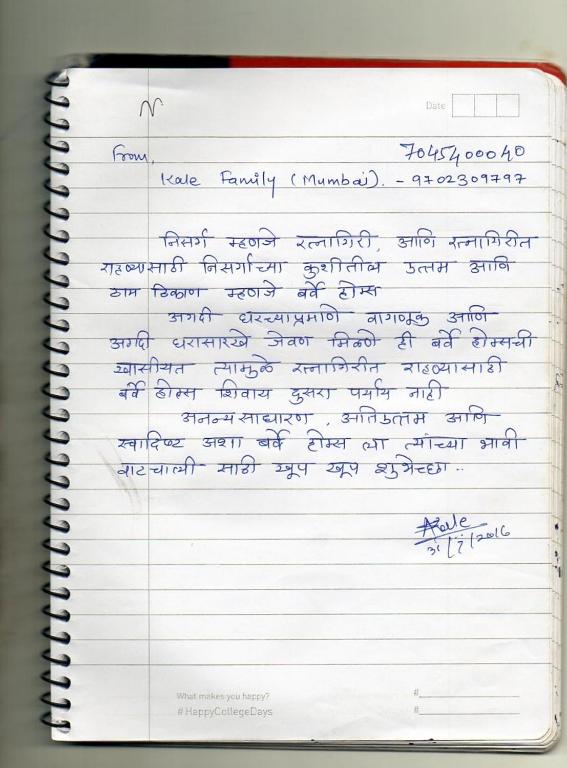 Date
From,
7045400040
Kale Family (Mumbai). - 9702309797
निसर्ग म्हणजे रत्नागिरी, आणि रत्नागिरीत
राहण्यासाठी निसर्गाच्या कुशीतील उत्तम आणि
ठाम ठिकाण म्हणजे बर्वे होम्स
अगदी घरच्याप्रमाणे वागणूक आणि
अगदी घरासारखे जेवण मिळणे ही बर्वे होम्सची
खासीयत त्यामुळे रत्नागिरीत राहण्यासाठी
बर्वे होम्स शिवाय दुसरा पर्याय नाही
अनन्यसाधारण, अतिउत्तम आणि
स्वादिष्ट अशा बर्वे होम्स ला त्यांच्या भावी
वाटचाली साठी खूप खूप शुभेच्छा ..
Kale
31/7/2016
What makes you happy? #
#HappyCollegeDays #